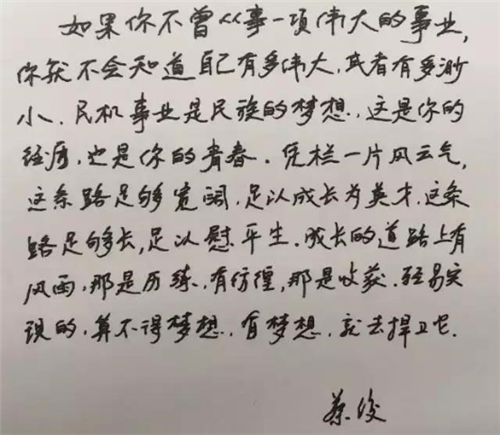 如果你不曾从事一项伟大的事业,
你就不会知道自己有多伟大,或者有多渺
小、民机事业是民族的梦想,这是你的
经历,也是你的青春.凭栏一片风云气,
这条路足够宽阔,足以成长为英才.这条
路足够长,足以慰平生.成长的道路上有
风雨,那是历练,有彷徨,那是收获.轻易实
现的,算不得梦想,有梦想,就去捍卫它.
蔡俊